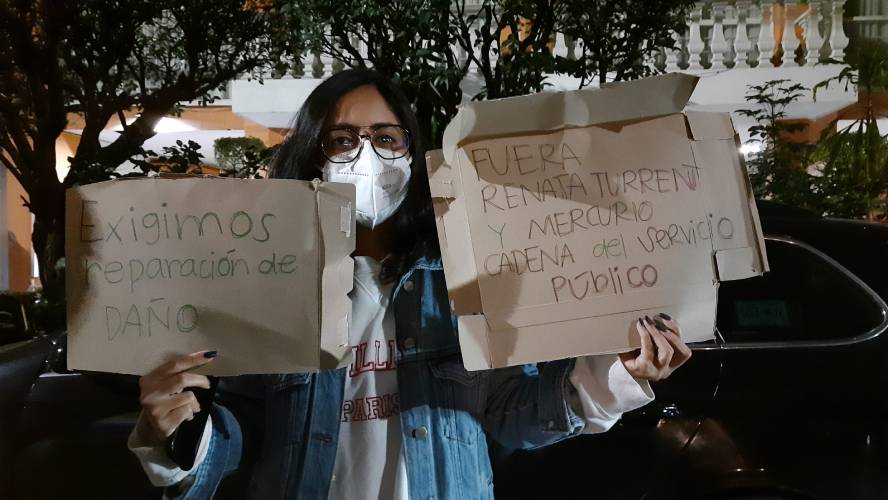 Exigimos
reparación de
DAÑO
FUERA
RENATA TURRENT
Y MERCURIO
CADENA del SERVICIO
PÚBLICO
PARIS